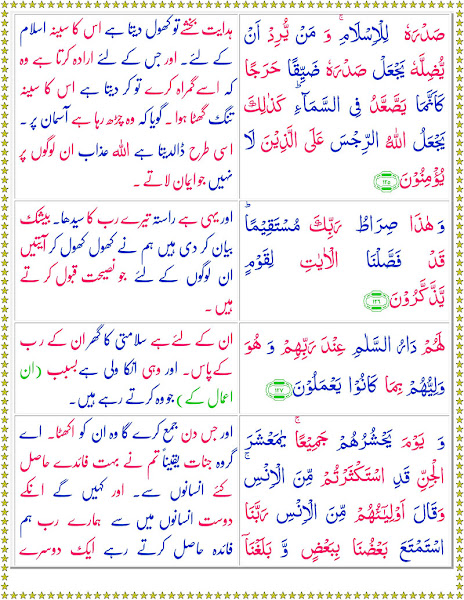 صَدْرَهٗ لِلْاِسْلَامِ ۚ وَ مَنْ يُّرِدْ اَنْ
يُّضِلَّهٗ يَجْعَلْ صَدْرَهٗ ضَيِّقًا حَرَجًا
كَاَنَّمَا يَصَّعَّدُ فِى السَّمَآءِ ؕ كَذٰلِكَ
يَجْعَلُ اللّٰهُ الرِّجْسَ عَلَى الَّذِيْنَ لَا
يُؤْمِنُوْنَ ﴿۱۲۵﴾
ہدایت بخشے تو کھول دیتا ہے اس کا سینہ اسلام
کے لئے۔ اور جس کے لئے ارادہ کرتا ہے وہ
کہ اسے گمراہ کرے تو کر دیتا ہے اس کا سینہ
تنگ گھٹا ہوا۔ گویا کہ وہ چڑھ رہا ہے آسمان پر۔
اسی طرح ڈالدیتا ہے اللہ عذاب ان لوگوں پر
نہیں جو ایمان لاتے۔
وَ هٰذَا صِرَاطُ رَبِّكَ مُسْتَقِيْمًا ؕ
قَدْ فَصَّلْنَا الْاٰيٰتِ لِقَوْمٍ
يَّذَّكَّرُوْنَ ﴿۱۲۶﴾
اور یہی ہے راستہ تیرے رب کا سیدھا۔ بیشک
بیان کر دی ہیں ہم نے کھول کھول کر آیتیں
ان لوگوں کے لئے جو نصیحت قبول کرتے
ہیں۔
لَهُمْ دَارُ السَّلٰمِ عِنْدَ رَبِّهِمْ وَ هُوَ
وَلِيُّهُمْ بِمَا كَانُوْا يَعْمَلُوْنَ ﴿۱۲۷﴾
ان کے لئے ہے سلامتی کا گھر ان کے رب
کے پاس۔ اور وہی انکا ولی ہے بسبب (ان
اعمال کے) جو وہ کرتے رہے ہیں۔
وَ يَوْمَ يَحْشُرُهُمْ جَمِيْعًا ۚ يٰمَعْشَرَ
الْجِنِّ قَدِ اسْتَكْثَرْتُمْ مِّنَ الْاِنْسِ ۚ
وَقَالَ اَوْلِيٰٓـؤُهُمْ مِّنَ الْاِنْسِ رَبَّنَا
اسْتَمْتَعَ بَعْضُنَا بِبَعْضٍ وَّ بَلَغْنَاۤ
اور جس دن جمع کرے گا وہ ان کو اکھٹا۔ اے
گروہ جنات یقیناً تم نے بہت فائدے حاصل
کئے انسانوں سے۔ اور کہیں گے انکے
دوست انسانوں میں سے ہمارے رب ہم
فائدہ حاصل کرتے رہے ایک دوسرے